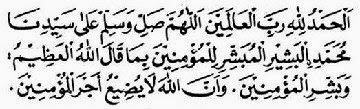 اَلْحَمْدُ لِلّٰهِ رَبِّ الْعَالَمِيْنَ اَللّٰهُمَّ صَلِّ وَسَلِّمْ عَلٰى سَيِّدِنَا
مُحَمَّدٍ اَلْبَشِيْرِ الْمُبَشِّرِ لِلْمُؤْمِنِيْنَ بِمَا قَالَ اللّٰهُ الْعَظِيْمُ :
وَبَشِّرِ الْمُؤْمِنِيْنَ . وَاَنَّ اللّٰهَ لَا يُضِيْعُ اَجْرَ الْمُؤْمِنِيْنَ .